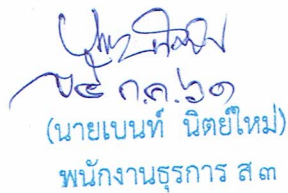 ๒๕ ก.ค. ๖๑
(นายเบนท์ นิตย์ใหม่)
พนักงานธุรการ ส ๓